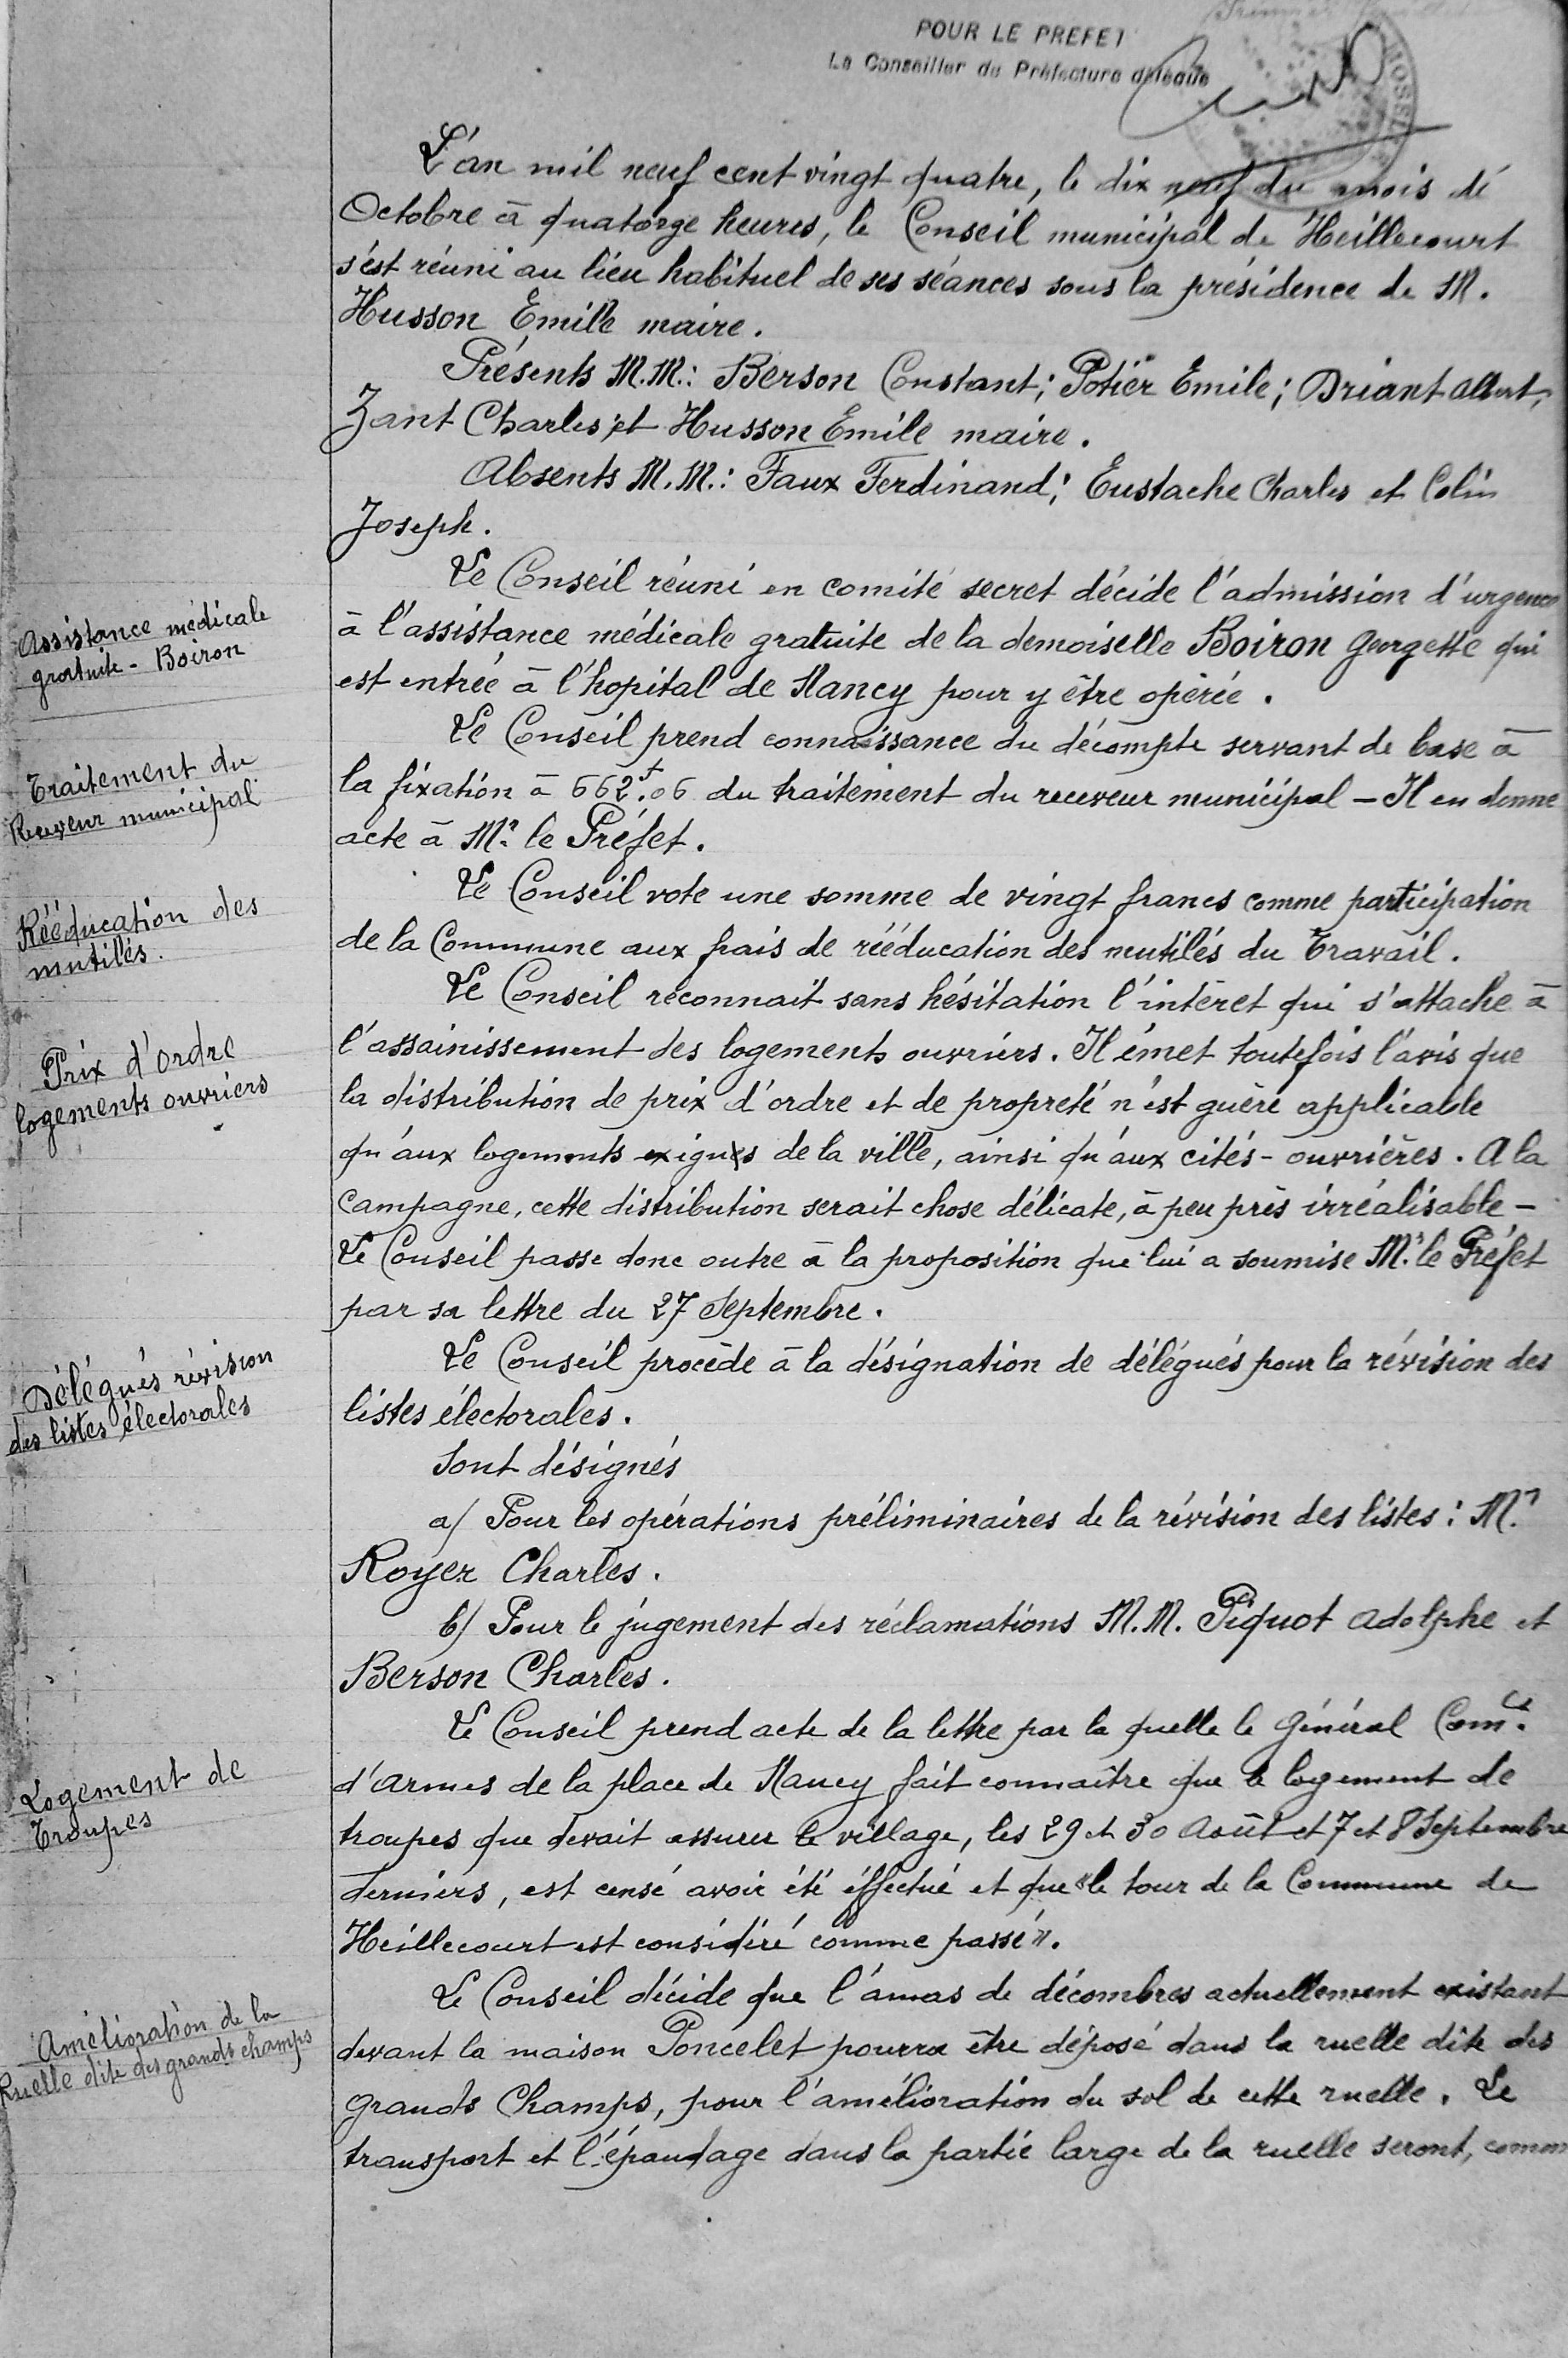 POUR LE PREFET
Le Conseiller de Préfecture délégué
L'an mil neuf cent vingt quatre, le dix neuf du mois d'
Octobre à quatorze heures, le Conseil municipal de Heillecourt
s'est réuni au lieu habituel de ses séances sous la présidence de M.
Husson Emile maire.
Présents M.M.: Berson Constant; Potier Emile; Driant Albert,
Zant Charles et Husson Emile maire.
Absents M.M.: Faux Ferdinand; Eustache Charles et Colin
Joseph.
Assistance médicale
gratuite - Boiron
Le Conseil réuni en comité secret décide l'admission d'urgence
à l'assistance médicale gratuite de la demoiselle Boiron Georgette qui
est entrée à l'hopital de Nancy pour y être opérée.
Traitement du
Receveur municipal
Le Conseil prend connaissance du décompte servant de base à
la fixation à 662f.06 du traitement du receveur municipal - Il en donne
acte à Mr. le Préfet.
Rééducation des
mutilés.
Le Conseil vote une somme de vingt francs comme participation
de la Commune aux frais de rééducation des mutilés du Travail.
Prix d'ordre
logements ouvriers
Le Conseil reconnait sans hésitation l'intéret qui s'attache à
l'assainissement des logements ouvriers. Il émet toutefois l'avis que
la distribution de prix d'ordre et de propreté n'est guère applicable
qu'aux logements exigus de la ville, ainsi qu'aux cités-ouvrières. A la
campagne, cette distribution serait chose délicate, à peu près irréalisable -
Le Conseil passe donc outre à la proposition que lui a soumise Mr. le Préfet
par sa lettre du 27 Septembre.
Délégués révision
des listes électorales
Le Conseil procède à la désignation de délégués pour la révision des
listes électorales.
Sont désignés
a/ Pour les opérations préliminaires de la révision des listes: Mr.
Royer Charles.
b/ Pour le jugement des réclamations M.M. Piquot Adolphe et
Berson Charles.
Logement de
Troupes
Le Conseil prend acte de la lettre par la quelle le Général Comct.
d'Armes de la place de Nancy fait connaître que le logement de
troupes que devait assurer le village, les 29 et 30 Août et 7 et 8 Septembre
derniers, est censé avoir été éffectué et que "le tour de la Commune de
Heillecourt est considéré comme passé".
Amélioration de la
Ruelle dite des grands champs
Le Conseil décide que l'amas de décombres actuellement existant
devant la maison Poncelet pourra être déposé dans la ruelle dite des
Grands Champs, pour l'amélioration du sol de cette ruelle. Le
transport et l'épandage dans la partie large de la ruelle seront, comm